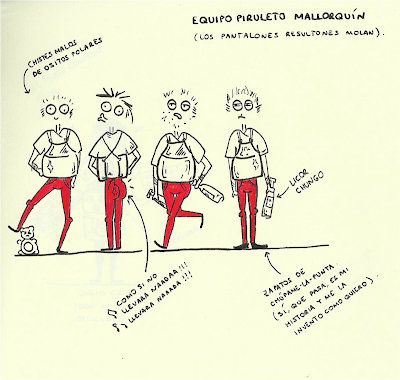 EQUIPO PIRULETO MALLORQUÍN
(LOS PANTALONES RESULTONES MOLAN).
CHISTES MALOS
DE OSITOS POLARES
LICOR
CHUNGO
COMO SI NO
LLEVARA NAADAA!!!
LLEVARA NAADA!!!
ZAPATOS DE
CHÚPAME-LA-PUNTA.
(SÍ, QUE PASA, ES MI
HISTORIA Y ME LA
INVENTO COMO QUIERO).